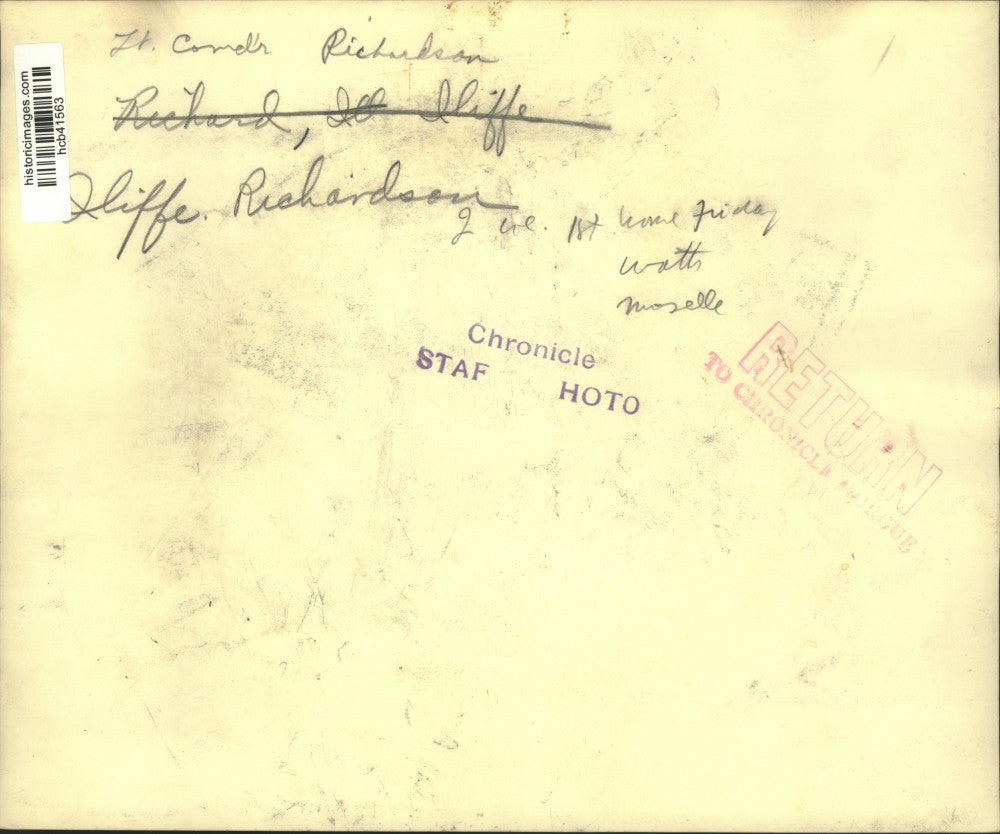 Lt. Comd'r Richardson
Richard, Lt Iliffe
Iliffe. Richardson
2 col. 1st home Friday
Watts
Moselle
Chronicle
STAF HOTO
RETURN
TO CHRONICLE
historicimages.com
hcb41563